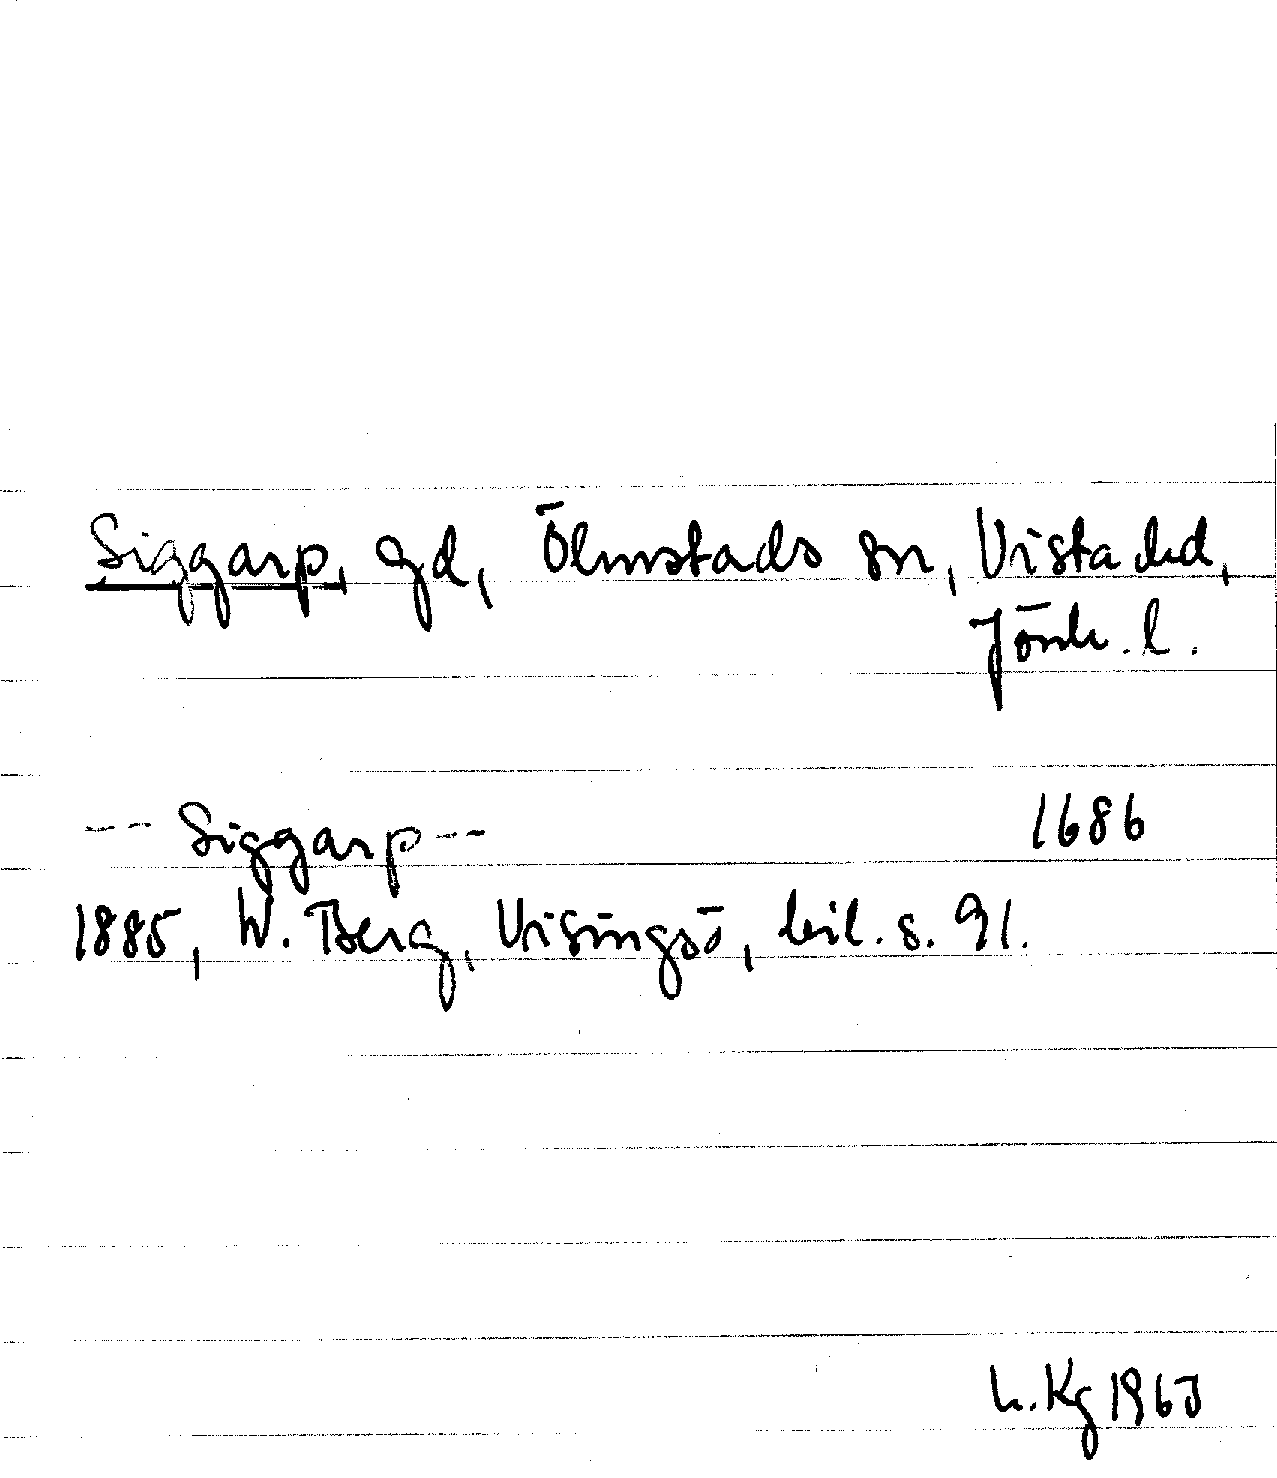 Siggarp, gd, Ölmstads sn, Vista hd,
Jönk. l.
--- Siggarp -- 1686
1885, W. Berg, Visingsö, bil. s. 91.
Kg 196